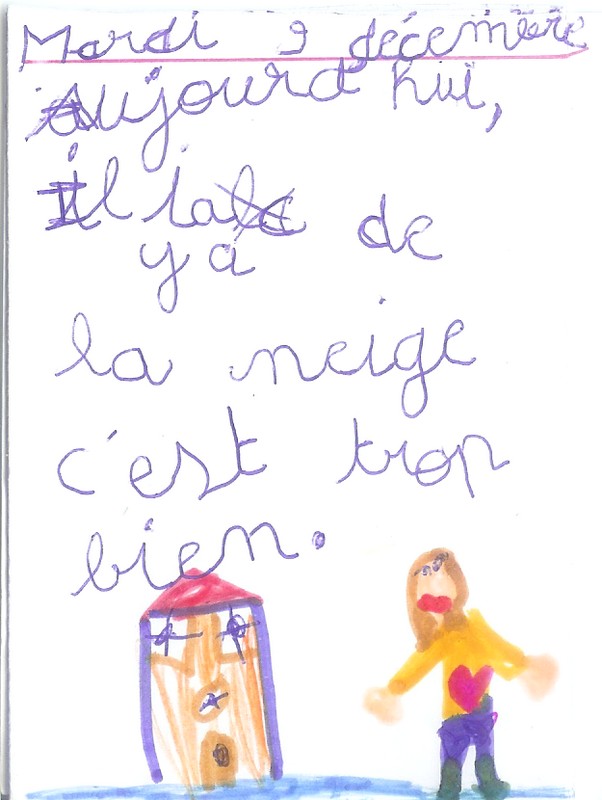 Mardi 9 décembre
Aujourd'hui,
il
y a de
la neige
c'est trop
bien.